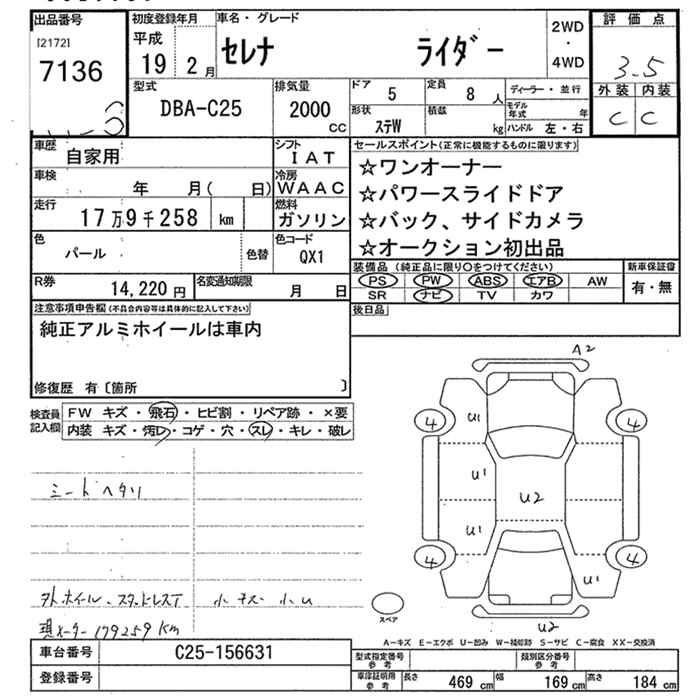 出品番号 初度登録年月 車名・グレード 評価点
[2172] 平成 セレナ ライダー 2WD・4WD 3.5
7136 19 2月
型式 排気量 ドア 定員 ディーラー・並行 外装 内装
DBA-C25 2000cc 5 8人 C C
形状 積載 モデル年式 年
ステW kg ハンドル 左・右
車歴 自家用 シフト IAT セールスポイント(正常に機能するものに限ります)
車検 年 月( 日) 冷房 WAAC ☆ワンオーナー
走行 17万9千258 km 燃料 ガソリン ☆パワースライドドア
☆バック、サイドカメラ
色 パール 色替 色コード QX1 ☆オークション初出品
R券 14,220円 名変通知期限 月 日 装備品(純正品に限り○をつけてください) 新車保証書
PS PW ABS エアB AW 有・無
SR ナビ TV カワ
注意事項申告欄(不具合内容等は具体的に記入して下さい) 後日品
純正アルミホイールは車内
修復歴 有〔箇所 〕
検査員記入欄 FW キズ・飛石・ヒビ割・リペア跡・×要
内装 キズ・汚レ・コゲ・穴・スレ・キレ・破レ
A2
4 U1 4
U1
U2
U1
4 4
U1
U2
シートヘタリ
外ホイール・スタッドレスT 小キズ 小U
現メーター179259Km
スペア
A-キズ E-エクボ U-凹み W-補修跡 S-サビ C-腐食 XX-交換済
車台番号 C25-156631 型式指定番号 参考 類別区分番号 参考
登録番号 車庫証明用 参考 長さ 469cm 幅 169cm 高さ 184cm